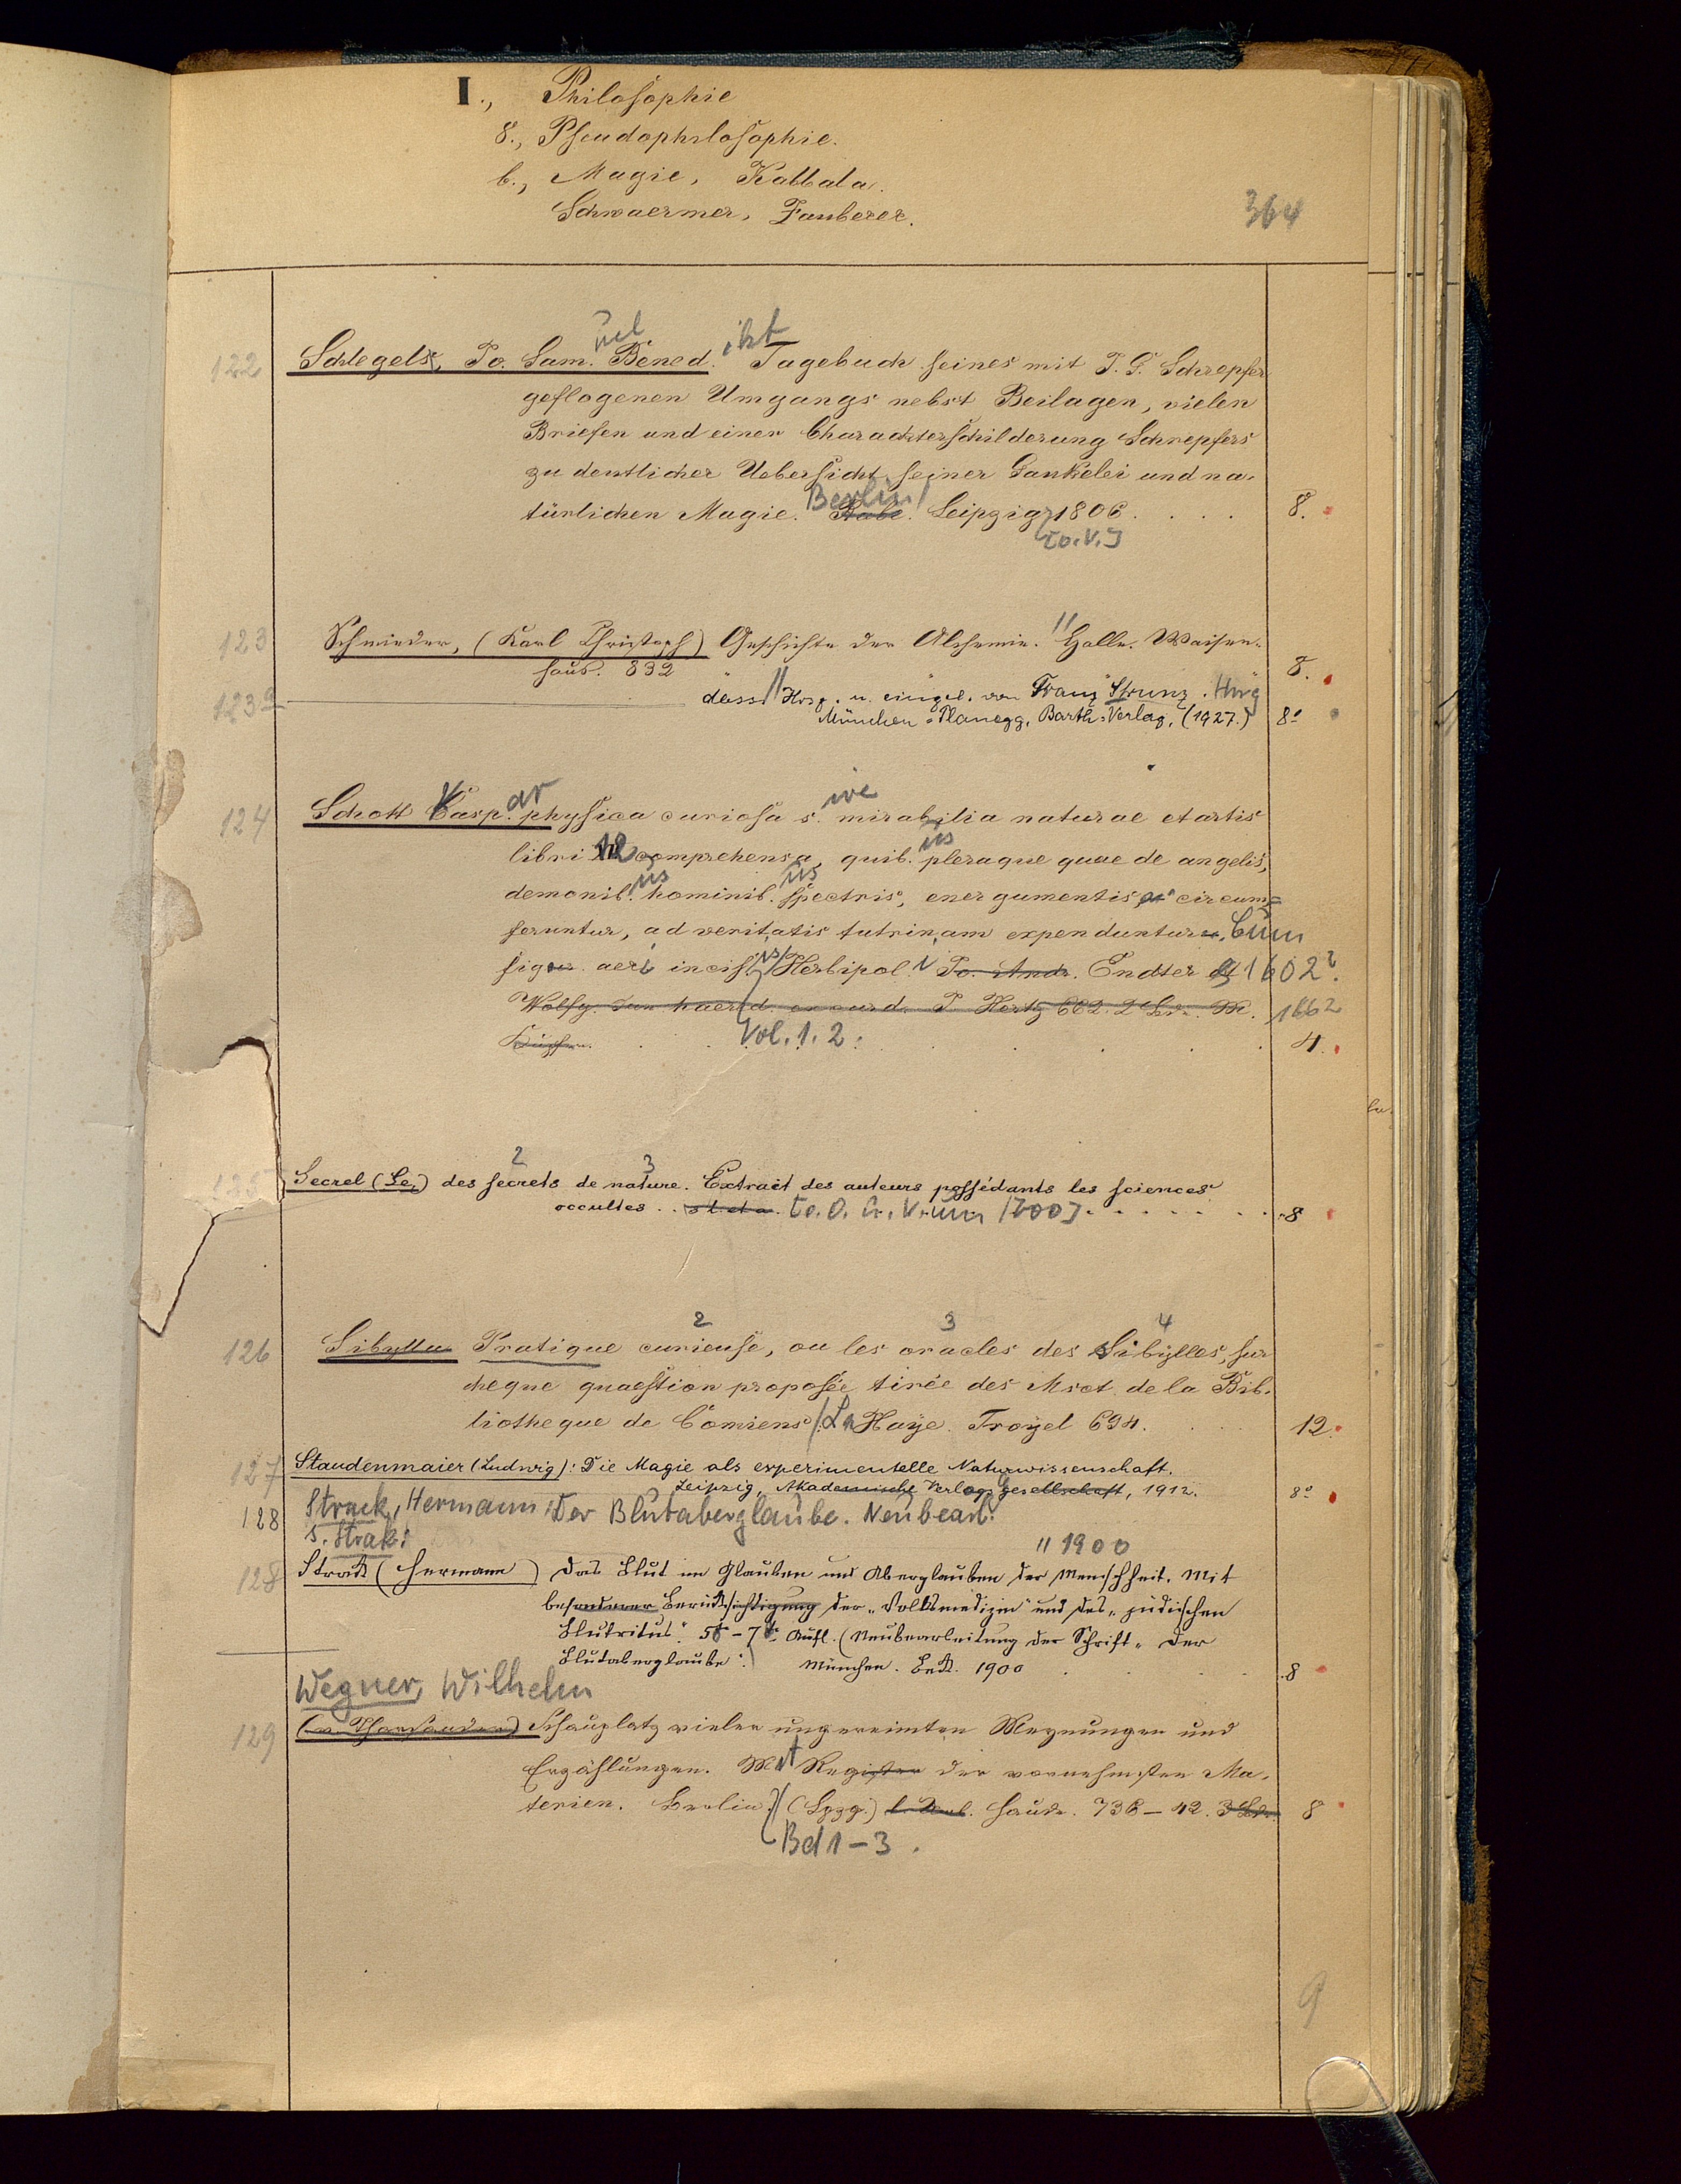 I., Philosophie
8., Pseudophilosophie.
b., Magie, Kabbala.
Schwaermer, Zauberer.
364
uel ikt
122 Schlegels, Jo. Sam. Bened. Tagebuch seines mit J. G. Schrepfer
geflogenen Umgangs nebst Beilagen, vielen
Briefen und einer Charackterschilderung Schrepfers
zu deutlicher Uebersicht seiner Gaukelei und na-
Berlin/
türlichen Magie. Leipzig 1806 . . . . 8.
[o.V.]
123 Schmieder, (Karl Christoph) Geschichte der Alchemie. Halle. Waisen-
haus. 832 8.
123a dass. Hrsg. u. eingel. von Franz Strunz.
München-Planegg, Barth-Verlag, (1927.) 8°
ar ive
124 Schott Casp. physica curiosa s. mirabilia naturae et artis
us
libri 12 comprehensa, quib. pleraque quae de angelis,
us us
demonib. hominib. spectris, energumentis circum=
feruntur, ad veritatis tutrinam expenduntur. Cum
figur. aeri incis. Herbipol. Jo. Andr. Endter 1602?
Wolfg. Jun haered. excud. J. Hertz 662. 2 1662
Kupfern. Vol. 1. 2. 4.
2 3
Secrel (Le) des secrets de nature. Extrait des auteurs possédants les sciences
occultes . . s l. et a. [o. O. u. V. um 1700] . . . . . 8
2 3 4
126 Sibylla Pratique curieuse, ou les oracles des Sibylles, sur
cheque quaestion proposée tirée des Msct. de la Bib-
liotheque de Comiens/ La Haye. Troyel 694. 12.
127 Staudenmaier (Ludwig): Die Magie als experimentelle Naturwissenschaft.
Leipzig, Akademische Verlagsgesellschaft, 1912. 8°
128 Strack, Hermann: Der Blutaberglaube. Neubearb.
s. Strak: " 1900
128 Strack (Hermann) Das Blut im Glauben und Aberglauben der Menschheit. Mit
besonderer Berücksichtigung der „Volksmedizin" und des „jüdischen
Blutritus". 5te - 7te Aufl. (Neubearbeitung der Schrift „Der
Blutaberglaube".) München. Beck. 1900 . . . . 8
Wegner, Wilhelm
129 (v. Tharsander) Schauplatz vieler ungereimten Meynungen und
Erzählungen. Mit Register der vornehmsten Ma-
terien. Berlin. (Lpzg.) Haude. 736-42. 3 Bde. 8
Bd 1-3.
9